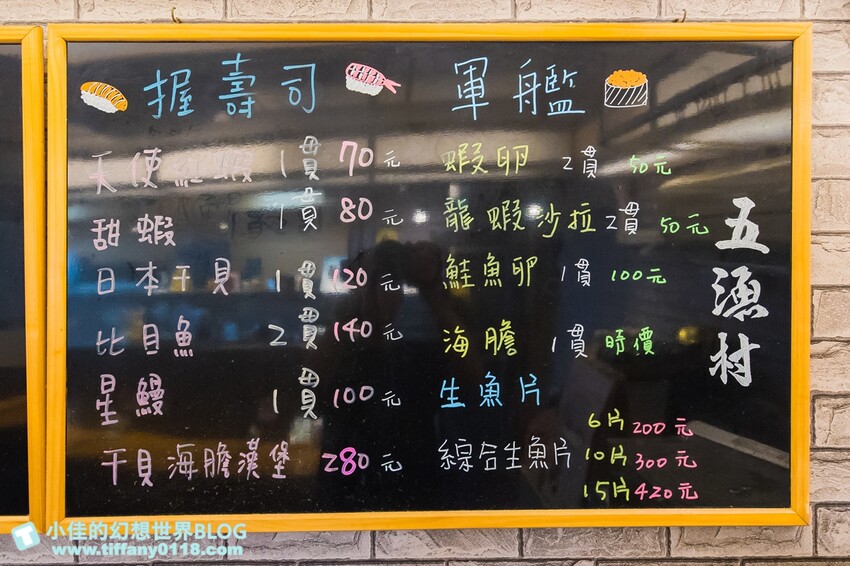 握壽司
天使紅蝦 1貫 70元
甜蝦 1貫 80元
日本干貝 1貫 120元
比目魚 2貫 140元
星鰻 1貫 100元
干貝海膽漢堡 280元
軍艦
蝦卵 2貫 50元
龍蝦沙拉 2貫 50元
鮭魚卵 1貫 100元
海膽 1貫 時價
生魚片
綜合生魚片
6片 200元
10片 300元
15片 420元
五漁村
小佳的幻想世界BLOG
www.tiffany0118.com